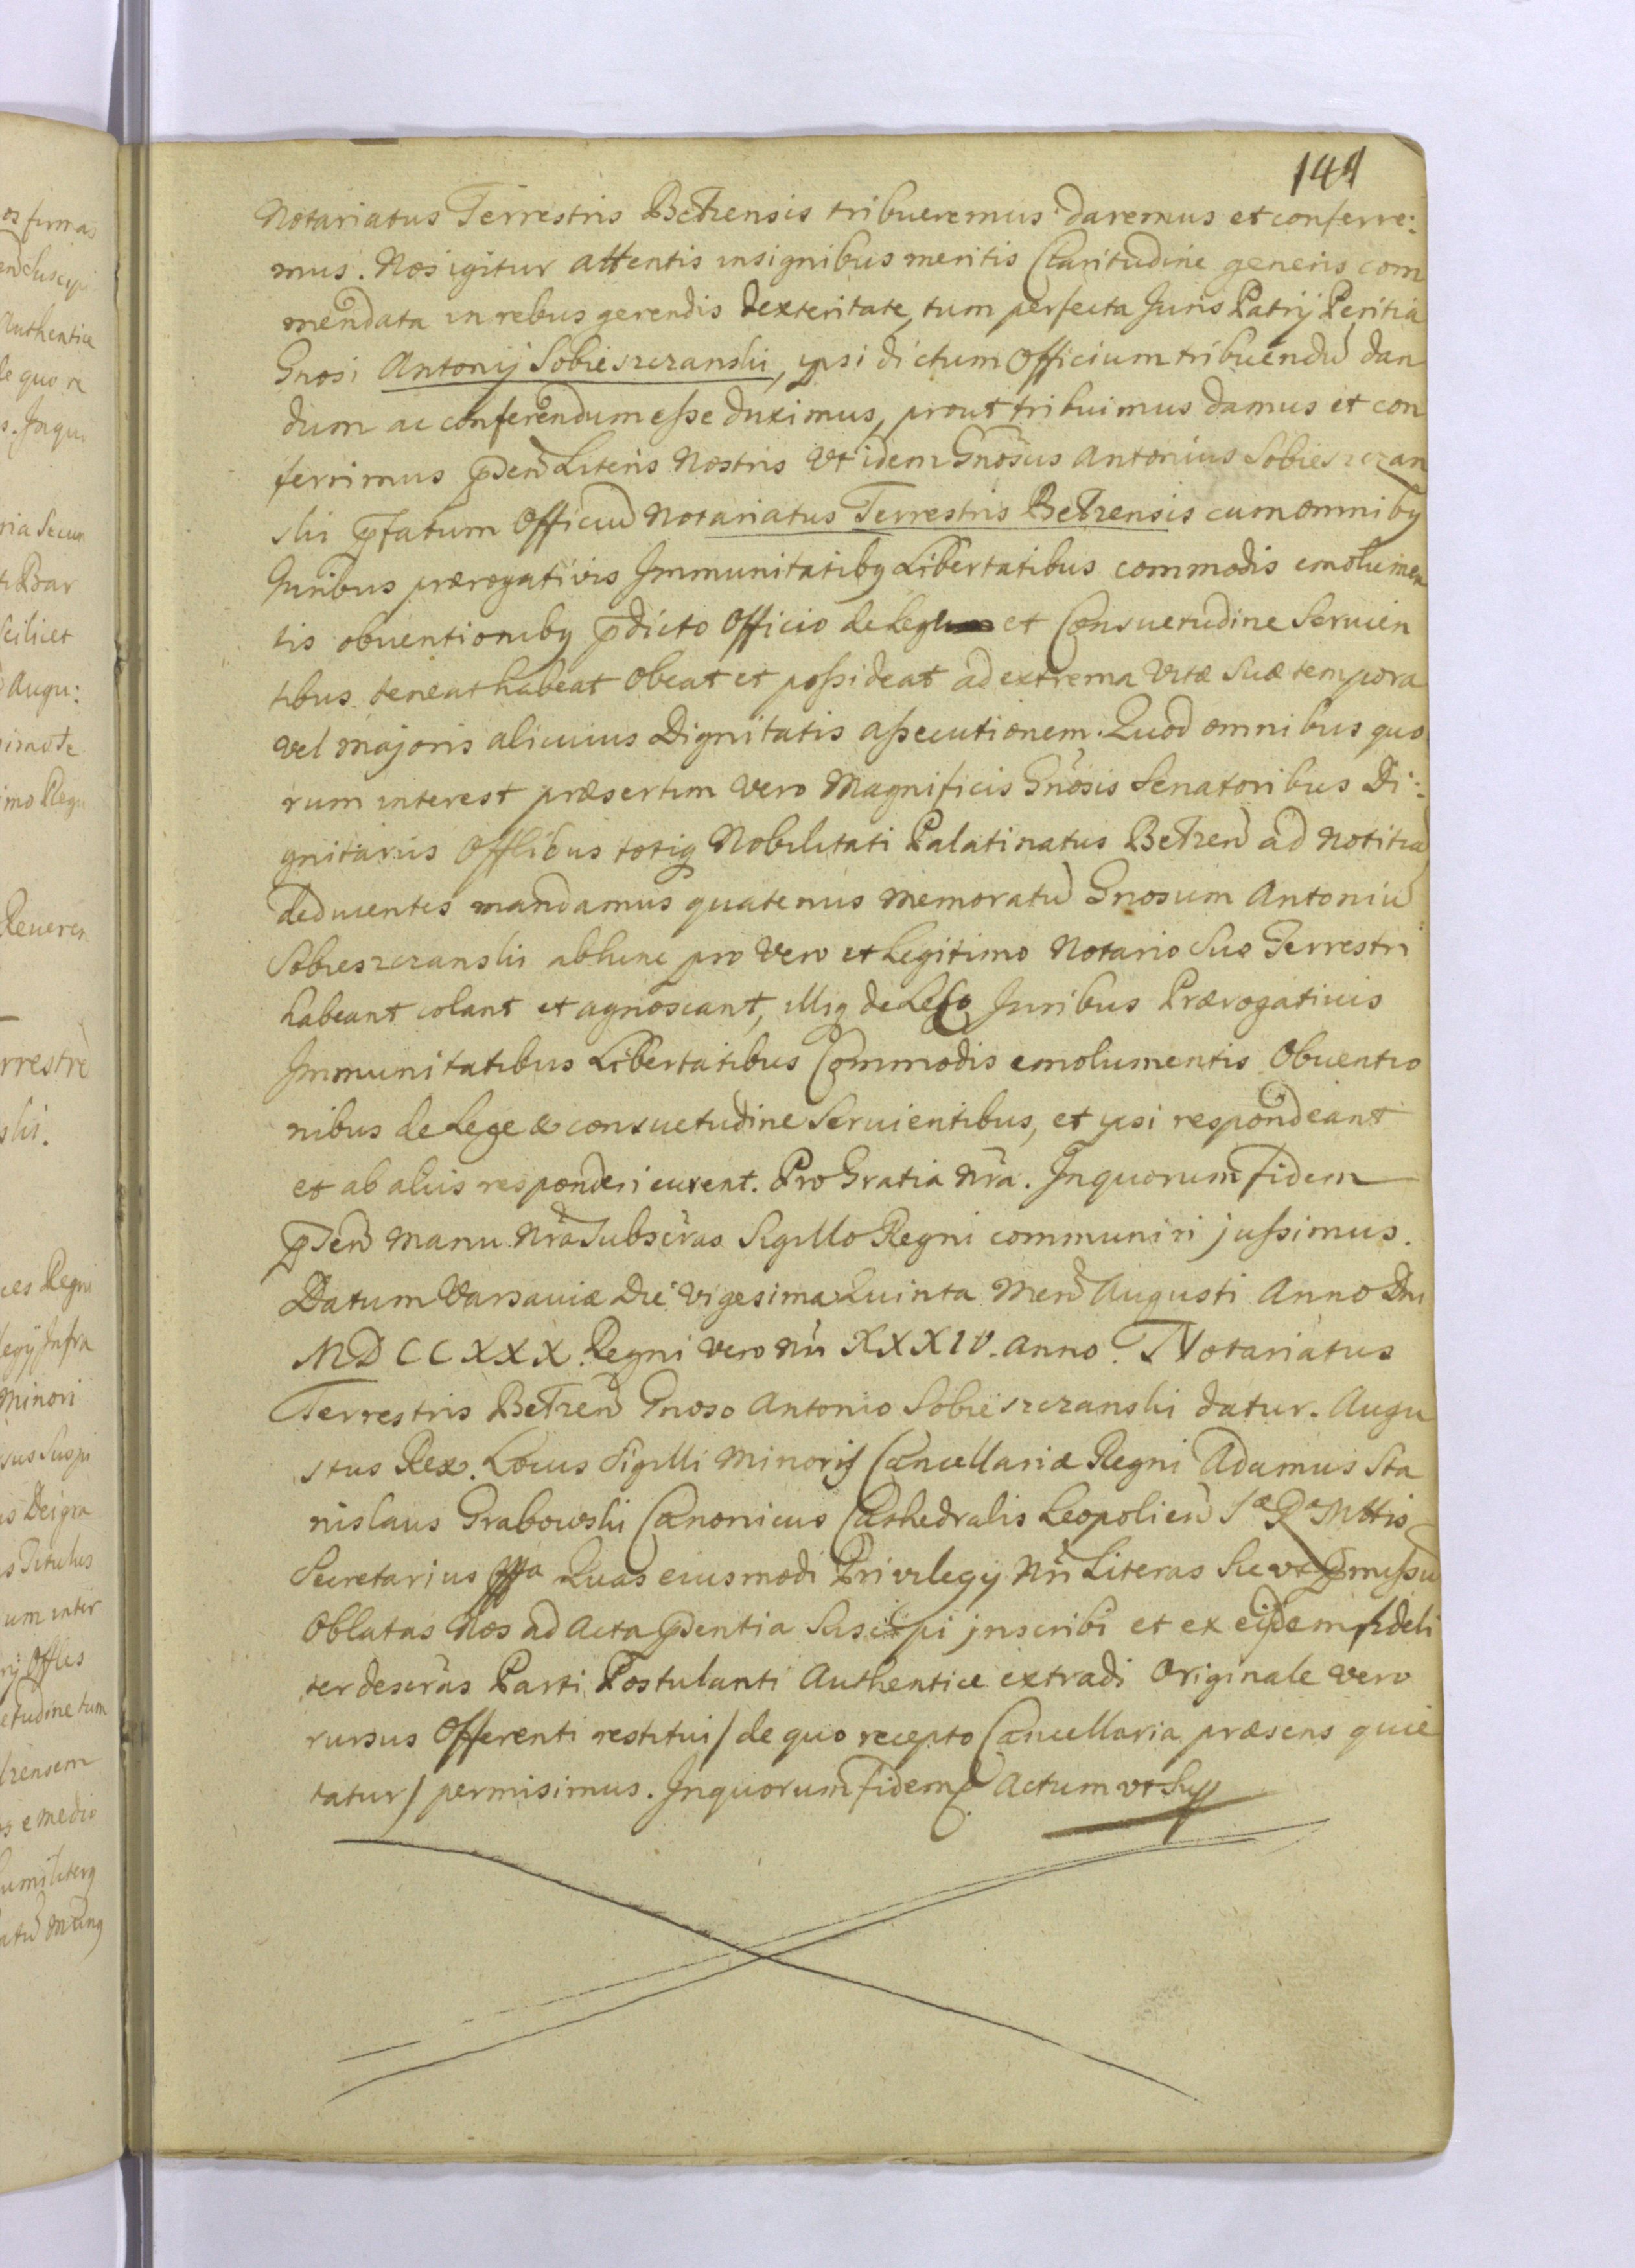 141
Notariatus Terrestris Betzensis tribueremus daremus et conferre:
mus. Nos igitur attentis insignibus meritis Claritudine generis com
mendata in rebus gerendis dexteritate, tum perfecta Juris Patrij Peritia
Gnosi Antonij Sobieszczanski, ipsi dictum Officium tribuendū dan
dum ac conferendum esse duximus, prout tribuimus damus et con
ferrimus p̄sen̄ Literis Nostris Vt idem Gnōsus Antonius Sobieszczan
ski p̄fatum Officiū Notariatus Terrestris Betzensis cum omniby
Juribus prærogativis Jmmunitatiby Libertatibus commodis emolumen
tis obventioniby p̄dicto Officio de Lege et Consuetudine Servien
tibus teneat habeat Obeat et possideat ad extrema Vitæ Suæ tempora
vel majoris alicuius Dignitatis assecutionem. Quod omnibus quo
rum interest præsertim vero Magnificis Gnōsis Senatoribus Di:
gnitariis Offlibus totiq Nobilitati Palatinatus Betzen̄ ad Notitiā
deducentes mandamus quatenus memoratū Gnosum Antoniū
Sobieszczanski abhinc pro Vero et Legitimo Notario Suo Terrestri
habeant colant et agnoscant, illiq de Juribus Prærogativis
Jmmunitatibus Libertatibus Commodis emolumentis Obventio
nibus de Lege & consuetudine Servientibus, et ipsi respondeant
et ab aliis responderi curent. Pro Gratia Nrā. Jn quorum fidem
p̄sen̄ Manu Nrā Subscrās Sigillo Regni communiri jussimus.
Datum Varsaviæ Die Vigesima Quinta Men̄ Augusti Anno Dni
MDCCXXX. Regni vero Nri XXXIV. Anno. Notariatus
Terrestris Betzen̄ Gnoso Antonio Sobieszczanski datur. Augu
stus Rex. Locus Sigilli Minoris Cancellariæ Regni Adamus Sta
nislaus Grabowski Canonicus Cathedralis Leopolien̄ Sæ Ræ Mttis
Secretarius Quas eiusmodi Privilegij Nri Literas Sic vt p̄missū
Oblatas Nos ad Acta p̄sentia Suscipi jnscribi et ex eisdem fideli
ter descrās Parti Postulanti Authentice extradi Originale vero
rursus Offerenti restitui / de quo recepto Cancellaria præsens quie
tatur / permisimus. Jn quorum fidem Actum vt Sup